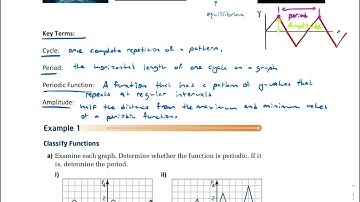 equilibrium
Y
period
Amplitude
Key Terms:
Cycle: one complete repetition of a pattern.
Period: the horizontal length of one cycle on a graph
Periodic Function: A function that has a pattern of y-values that
repeats at regular intervals
Amplitude: half the distance from the maximum and minimum values
of a periodic function.
Example 1
Classify Functions
a) Examine each graph. Determine whether the function is periodic. If it
is, determine the period.
i)
ii)
y
4
2
y
4
2